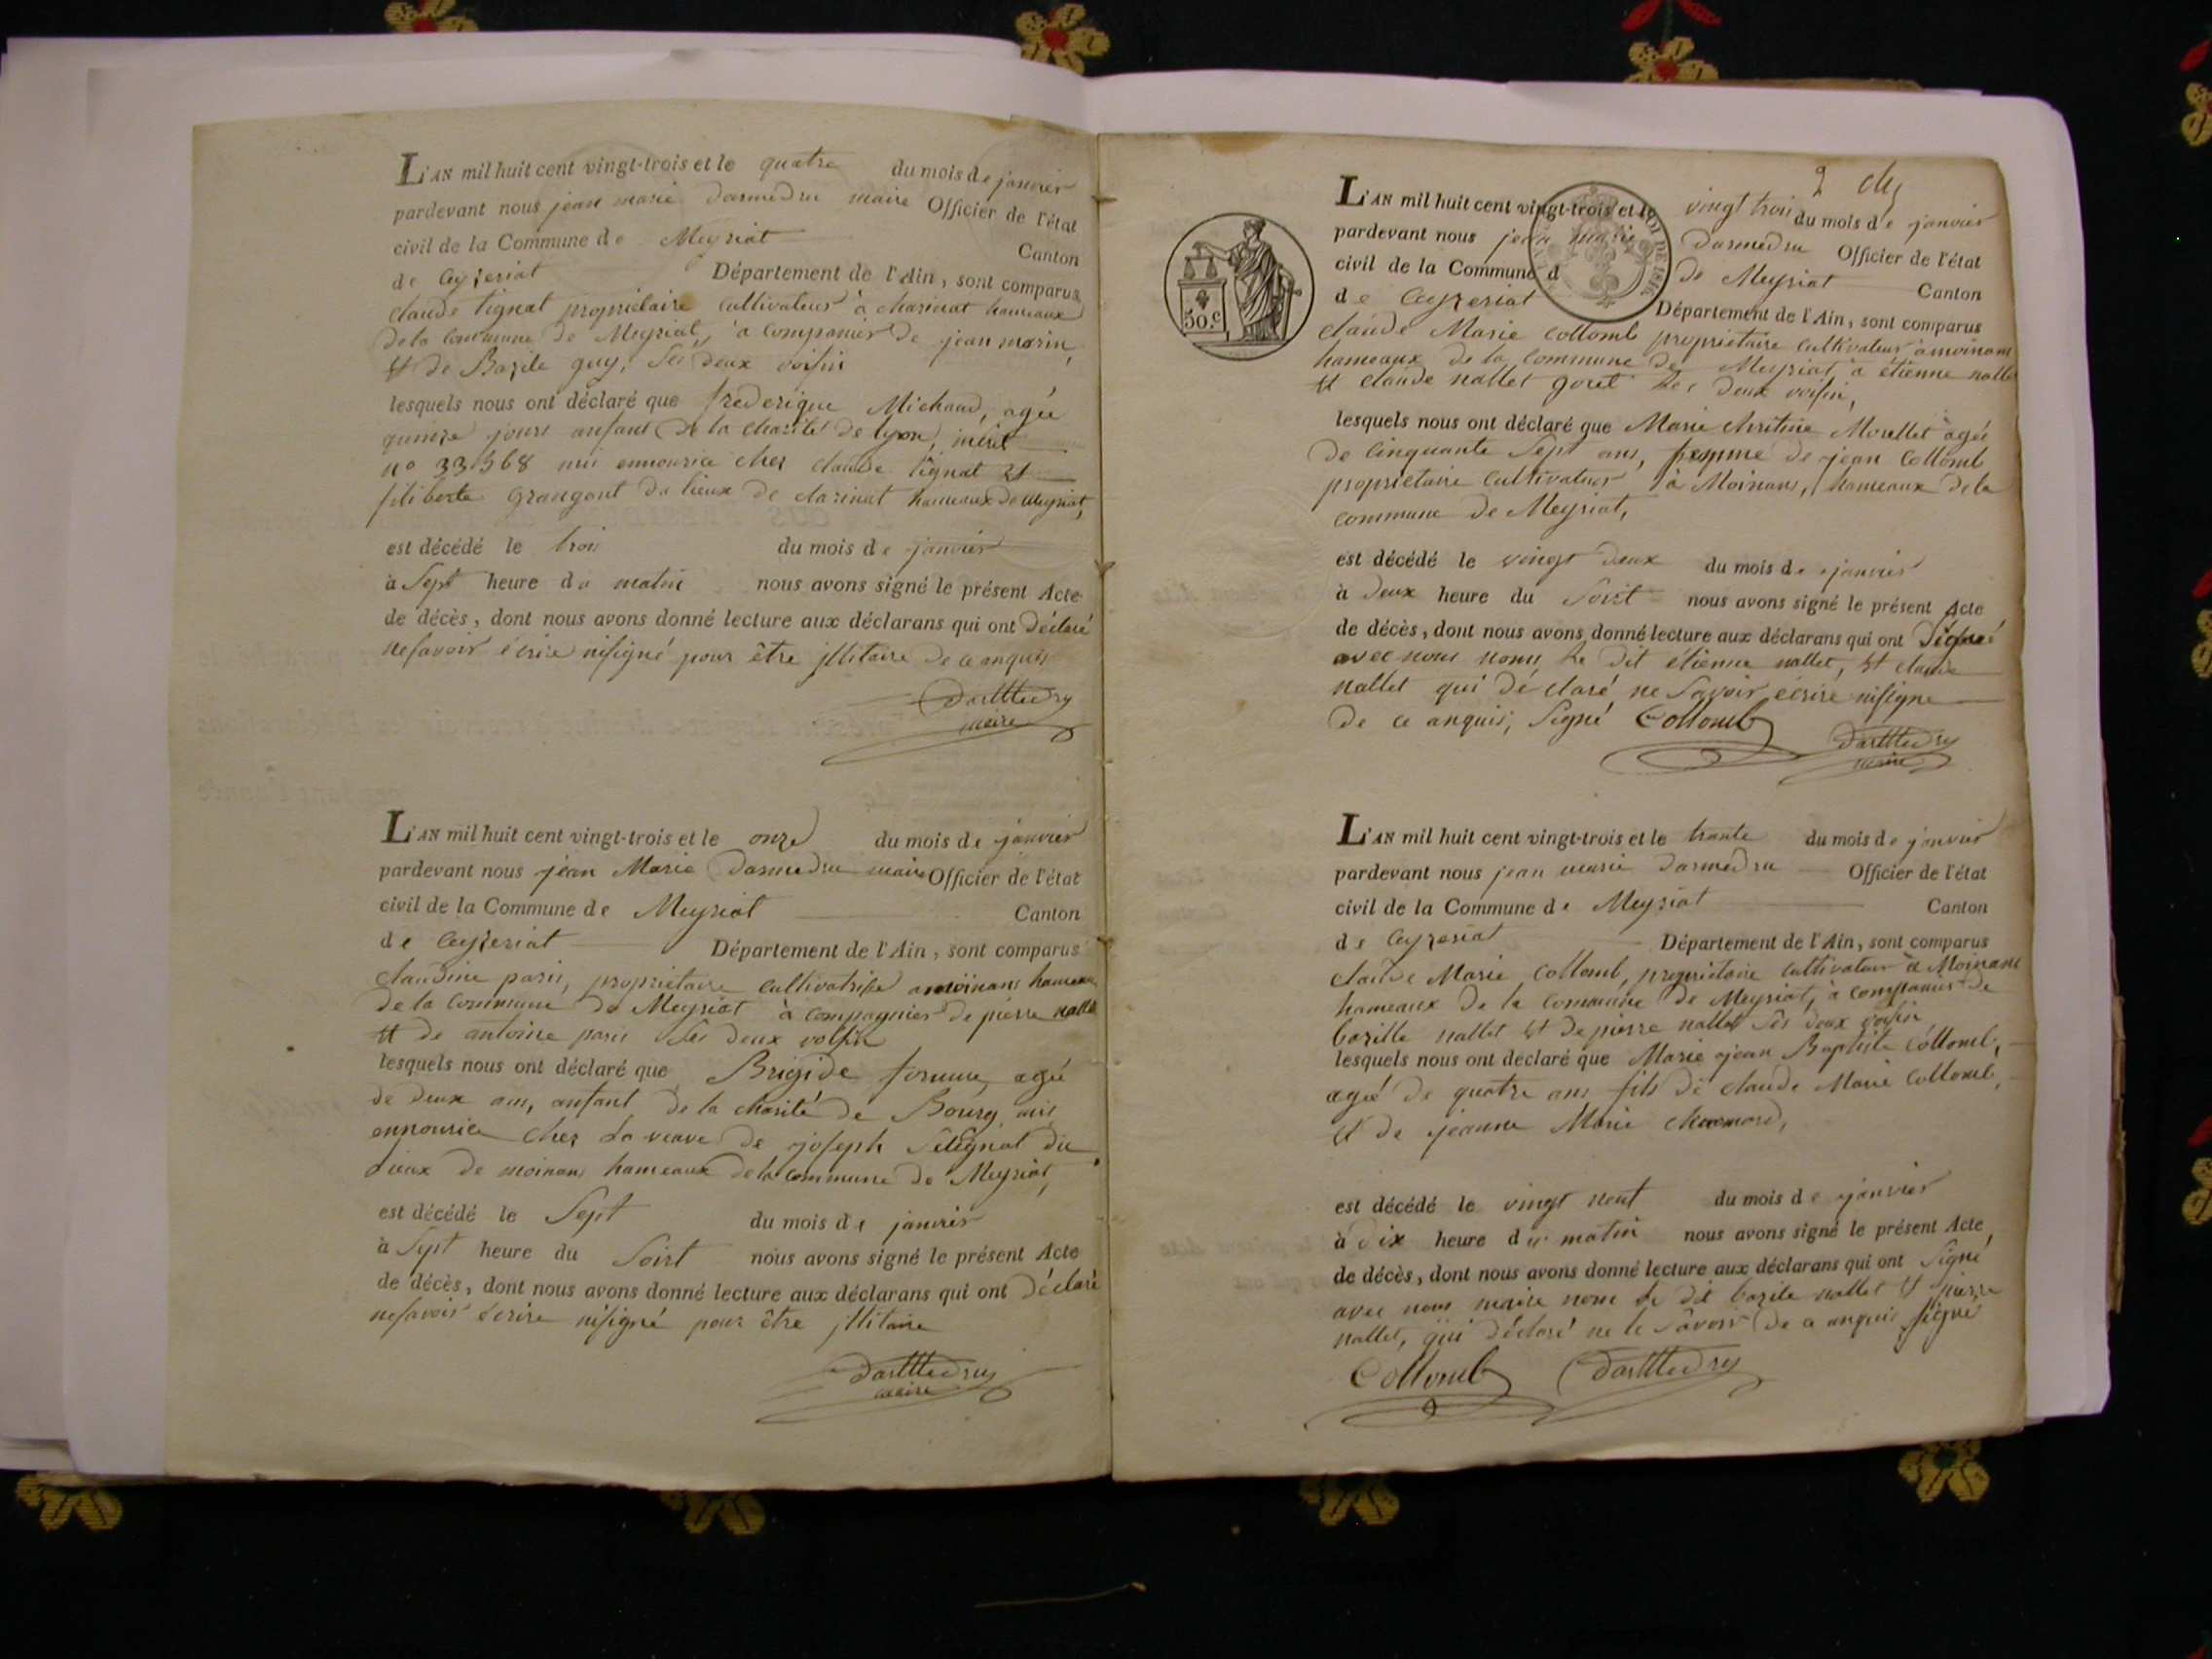 L'AN mil huit cent vingt-trois et le quatre du mois de janvier
pardevant nous jean marie darmedru maire Officier de l'état
civil de la Commune de Meyriat Canton
de Ceyzeriat Département de l'Ain, sont comparus
claude tignat propriétaire cultivateur à charinat hameaux
de la commune de Meyriat, à compagnier de jean marin,
et de Bazile guy, ses deux voisin
lesquels nous ont déclaré que frederique Michaud, agée
quinze jours anfant de la charité de lyon,
n° 33568 mis ennourice cher claude tignat et
filiberte grangont du lieux de clarinat hameaux de meyriat,
est décédé le trois du mois de janvier
à Sept heure du matin nous avons signé le présent Acte
de décès, dont nous avons donné lecture aux déclarans qui ont déclaré
nesavoir écrire nisigné pour être jllitaire de ce anquis
DarMedru
maire
L'AN mil huit cent vingt-trois et le onze du mois de janvier
pardevant nous jean Marie darmedru maire Officier de l'état
civil de la Commune de Meyriat Canton
de Ceyzeriat Département de l'Ain, sont comparus
claudine paris, propriétaire cultivatrise amoinans hameaux
de la commune de Meyriat à compagnier de pierre nallet
et de antoine paris ses deux voisin
lesquels nous ont déclaré que Brigide agée
de deux ans, anfant de la charité de Bourg mis
ennourice cher la veuve de joseph du
Lieux de moinans hameaux de la commune de Meyriat,
est décédé le Sept du mois de janvier
à Sept heure du Soirt nous avons signé le présent Acte
de décès, dont nous avons donné lecture aux déclarans qui ont déclaré
nesavoir écrire nisigné pour être jllitaire
DarMedru
maire
2
L'AN mil huit cent vingt-trois et le vingt trois du mois de janvier
pardevant nous jean marie darmedru Officier de l'état
civil de la Commune d de Meyriat Canton
de Ceyzeriat Département de l'Ain, sont comparus
50.c
claude Marie Collomb propriétaire cultivateur amoinans
hameaux de la commune de Meyriat, à étienne nallet
et claude nallet goret ses deux voisin,
lesquels nous ont déclaré que Marie christine Morellet agée
de Cinquante Sept ans, femme de jean Collomb
propriétaire Cultivateur à Moinans, hameaux de la
commune de Meyriat,
est décédé le vingt deux du mois de janvier
à deux heure du Soirt nous avons signé le présent Acte
de décès, dont nous avons donné lecture aux déclarans qui ont Signé
avec nous nom, le dit étienne nallet, et claude
nallet qui déclaré ne Savoir écrire nisigne
de ce anquis, Signé Collomb
DarMedru
maire
L'AN mil huit cent vingt-trois et le trante du mois de janvier
pardevant nous jean marie darmedru Officier de l'état
civil de la Commune de Meyriat Canton
de Ceyzeriat Département de l'Ain, sont comparus
claude Marie Collomb, propriétaire cultivateur à Moinans
hameaux de la commune de Meyriat, à companier de
bazille nallet et de pierre nallet ses deux voisin
lesquels nous ont déclaré que Marie jean Baptiste Collomb,
agé de quatre ans fils de claude Marie Collomb,
et de jeanne Marie
est décédé le vingt neuf du mois de janvier
à dix heure du matin nous avons signé le présent Acte
de décès, dont nous avons donné lecture aux déclarans qui ont Signé
avec nous maire nom le dit bazile nallet et pierre
nallet, qui déclaré ne le Savoir de ce anquis Signé
Collomb DarMedru